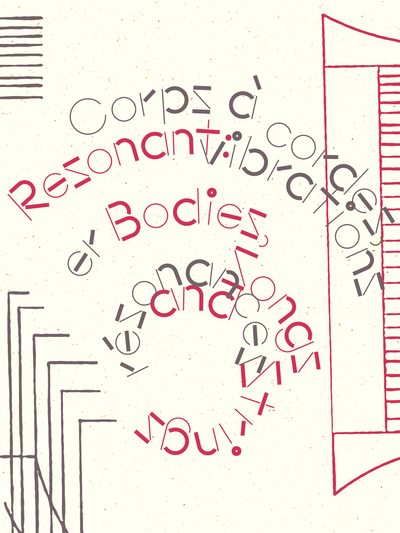 Corps à cordes,
vibrations
et
résonances
Resonant:
Bodies,
songs
and
strings